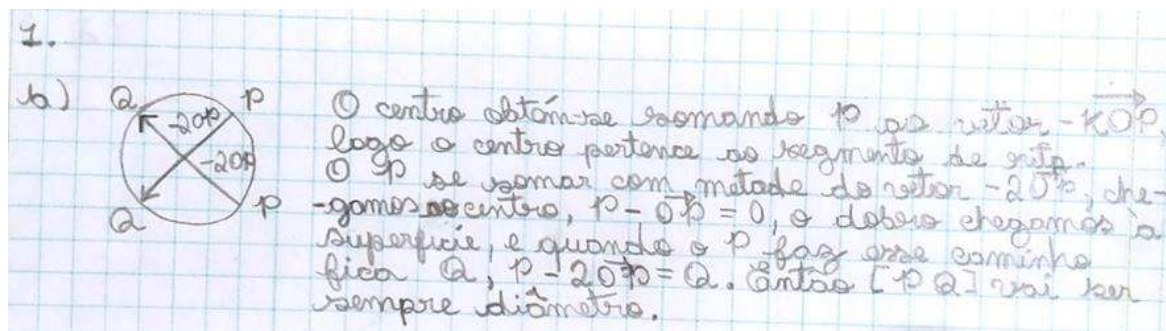 1.
b) Q P
-2OP
-2OP
Q P
O centro obtém-se somando P ao vetor -KOP,
logo o centro pertence ao segmento de reta.
O P se somar com metade do vetor -2OP, che-
-gamos ao centro, P - OP = O, o dobro chegamos à
superfície, e quando o P faz esse caminho
fica Q, P - 2OP = Q. Então [PQ] vai ser
sempre diâmetro.